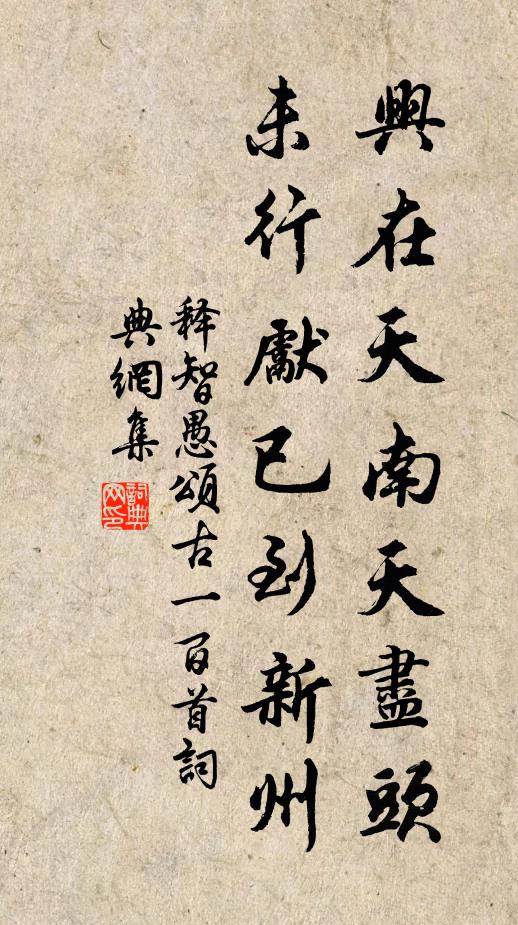 興在天南天盡頭
未行獻已到新州
释智愚頌古一百首詞
典網集
詞典網印